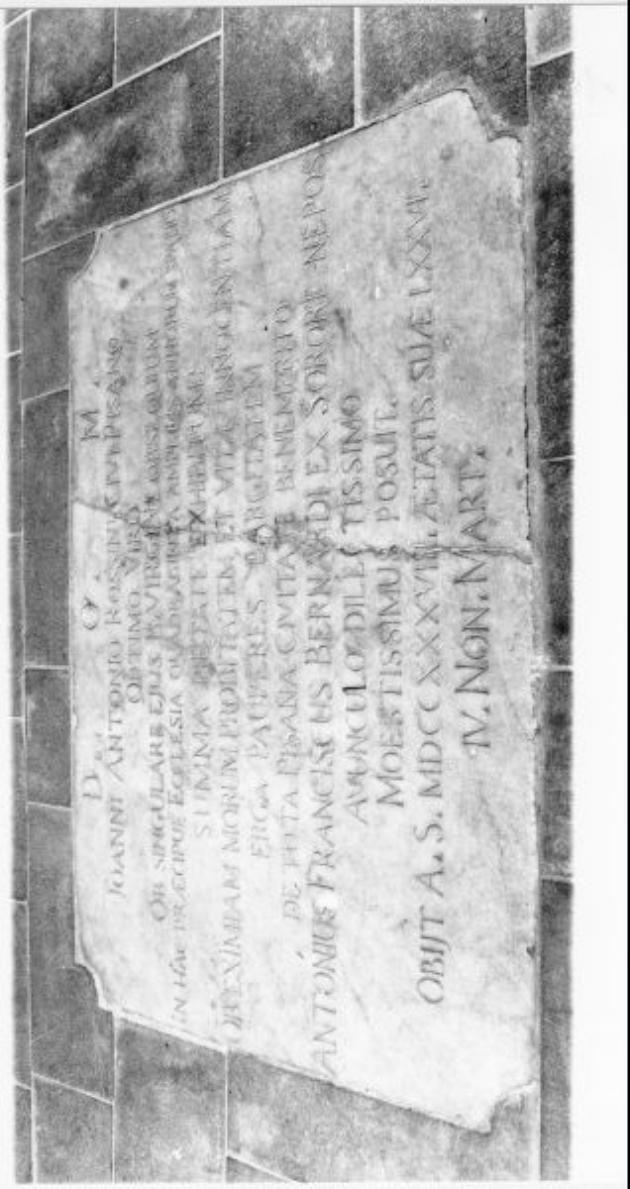 D. O. M.
IOANNI ANTONIO ROSSINI CIVI PISANO
OPTIMO VIRO
OB SINGULARE EJUS B. VIRGINI OBSEQUIUM
IN HAC PRÆCIPUE ECCLESIA QUADRAGINTA AMPLIUS ANNORUM SPATIO
SUMMA PIETATE EXHIBITUM
OB EXIMIAM MORUM PROBITATEM ET VITÆ INNOCENTIAM
ERGA PAUPERES LARGITATEM
DE TOTA PISANA CIVITATE BENEMERITO
ANTONIUS FRANCISCUS BERNARDI EX SORORE NEPOS
AVUNCULO DILECTISSIMO
MOESTISSIMUS POSUIT.
OBIJT A. S. MDCCXXXVIII. ÆTATIS SUÆ LXXVI.
IV. NON. MART.